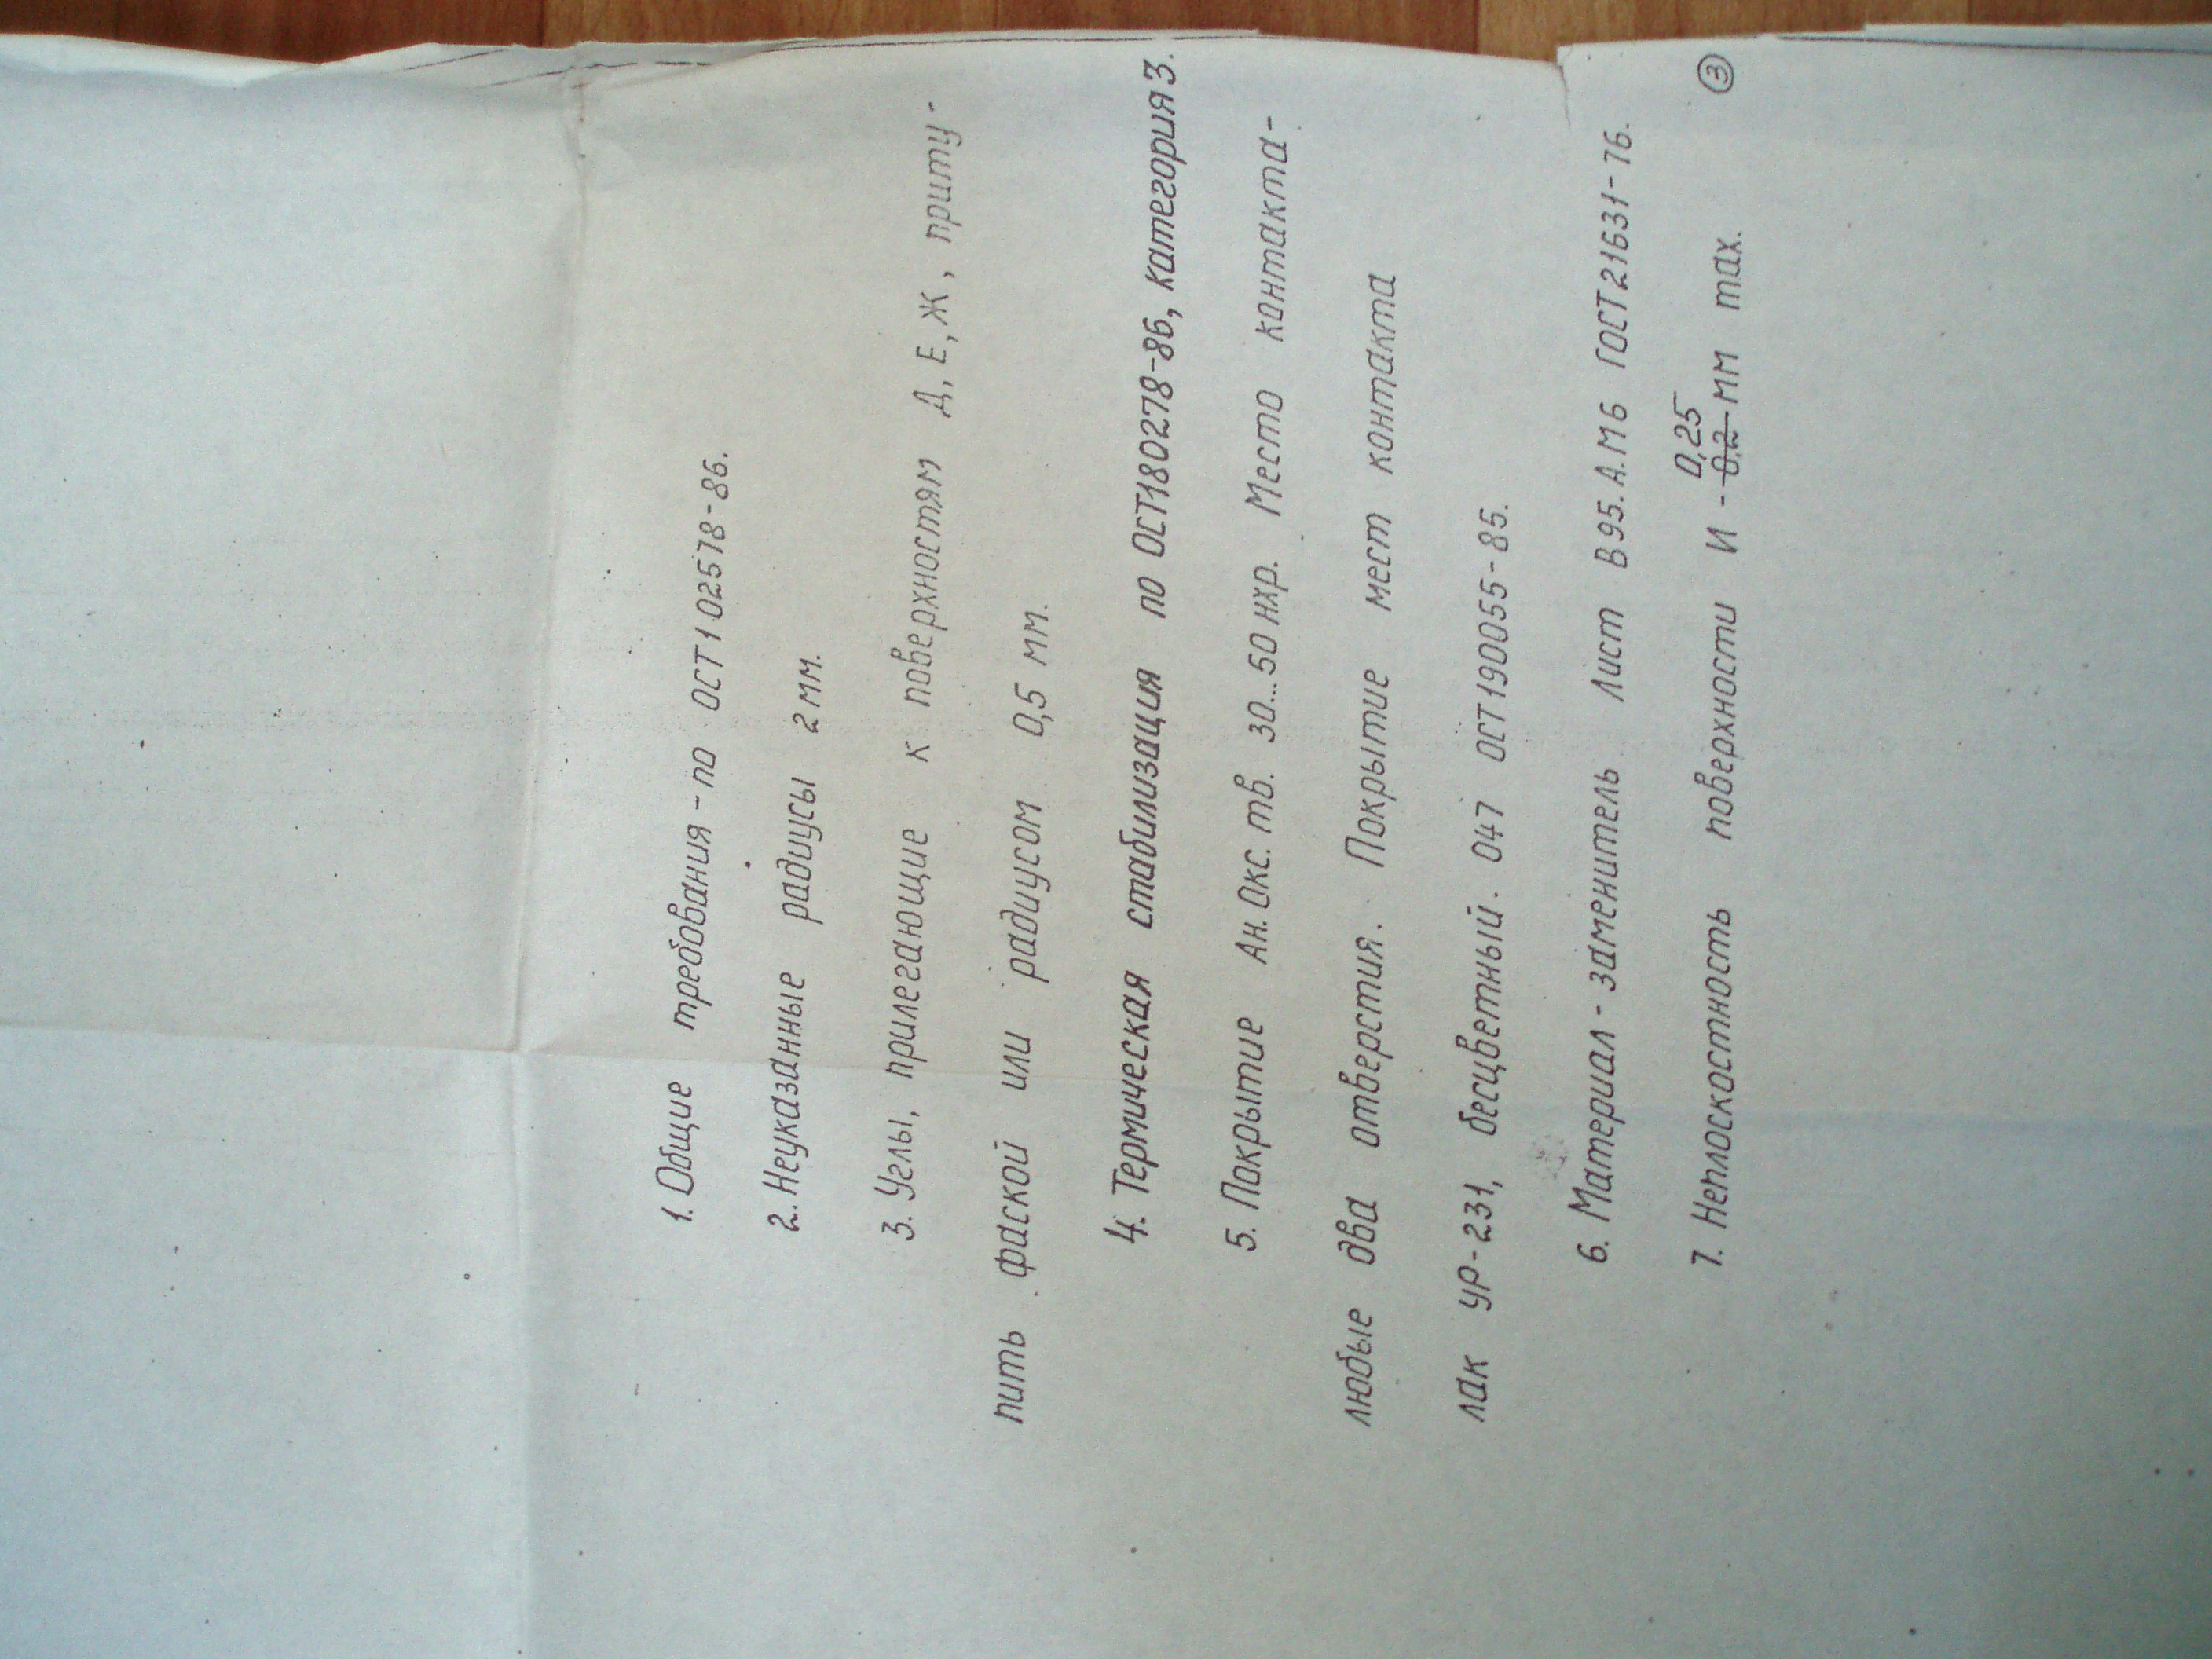 1. Общие требования - по ОСТ1 02578-86.
2. Неуказанные радиусы 2 мм.
3. Углы, прилегающие к поверхностям Д, Е, Ж, приту-
пить фаской или радиусом 0,5 мм.
4. Термическая стабилизация по ОСТ180278-86, категория 3.
5. Покрытие Ан. Окс. тв. 30...50 нхр. Место контакта-
любые два отверстия. Покрытие мест контакта
лак УР-231, бесцветный. 047 ОСТ190055-85.
6. Материал - заменитель лист В95.А.М6 ГОСТ21631-76.
0,25
7. Неплоскостность поверхности И - 0,2 мм max. 3